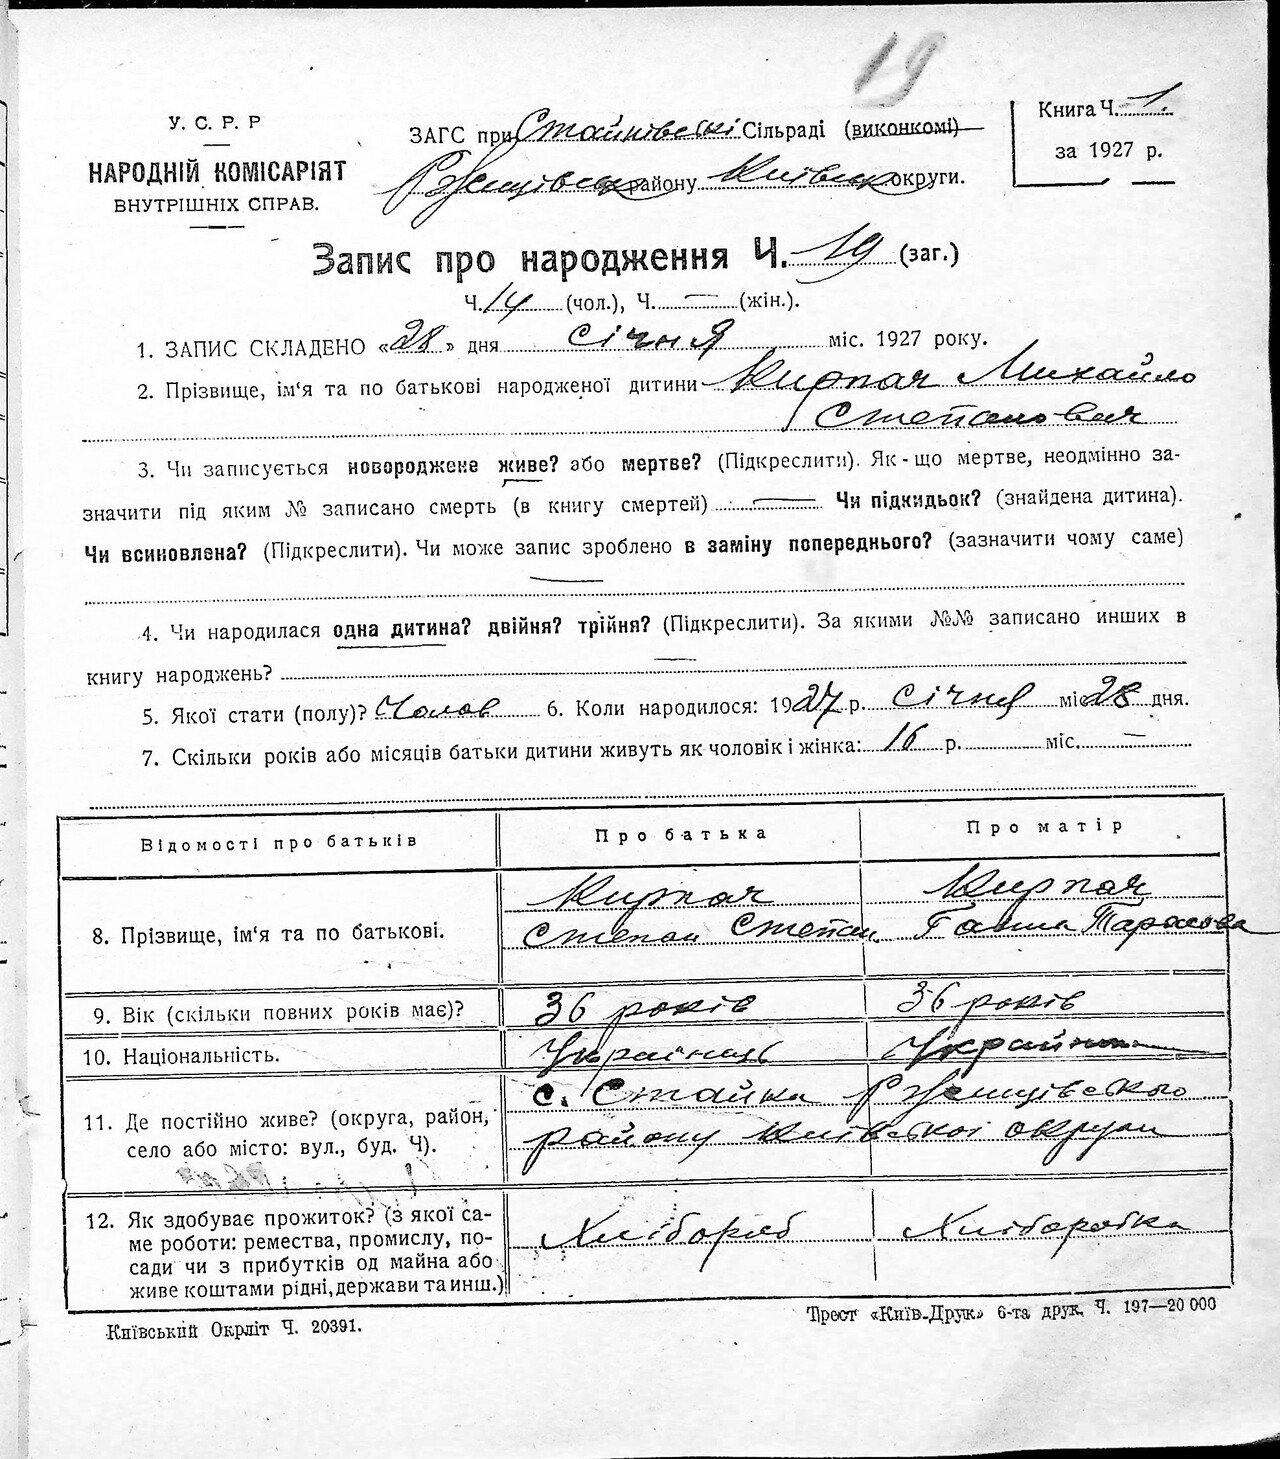 19
У. С. Р. Р
НАРОДНІЙ КОМІСАРІЯТ
ВНУТРІШНІХ СПРАВ.
ЗАГС при Стайківські Сільраді (виконкомі)
Ржищівськ району Київськ округи.
Книга Ч. 1.
за 1927 р.
Запис про народження Ч. 19 (заг.)
Ч. 14 (чол.), Ч. — (жін.).
1. ЗАПИС СКЛАДЕНО «28» дня січня міс. 1927 року.
2. Прізвище, ім'я та по батькові народженої дитини Кирпач Михайло
Степанович
3. Чи записується новороджене живе? або мертве? (Підкреслити). Як-що мертве, неодмінно за-
значити під яким № записано смерть (в книгу смертей) — Чи підкидьок? (знайдена дитина).
Чи всиновлена? (Підкреслити). Чи може запис зроблено в заміну попереднього? (зазначити чому саме)
—
4. Чи народилася одна дитина? двійня? трійня? (Підкреслити). За якими №№ записано инших в
книгу народжень? —
5. Якої стати (полу)? Чолов 6. Коли народилося: 1927 р. січня міс 28 дня.
7. Скільки років або місяців батьки дитини живуть як чоловік і жінка: 16 р. міс. —
Відомості про батьків Про батька Про матір
8. Прізвище, ім'я та по батькові. Кирпач Степан Степан. Кирпач Ганна Тарасова
9. Вік (скільки повних років має)? 36 років 36 років
10. Національність. Українець Українка
11. Де постійно живе? (округа, район, село або місто: вул., буд. Ч). с. Стайка Ржищівського
району Київської округи
12. Як здобуває прожиток? (з якої са-
ме роботи: ремества, промислу, по-
сади чи з прибутків од майна або
живе коштами рідні, держави та инш.) Хлібороб Хліборобка
Київський Окрліт Ч. 20391.
Трест «Київ-Друк» 6-та друк. Ч. 197—20 000